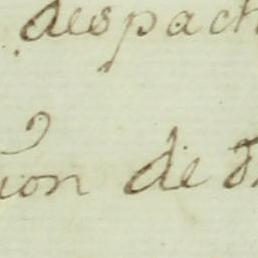 despach
ion de